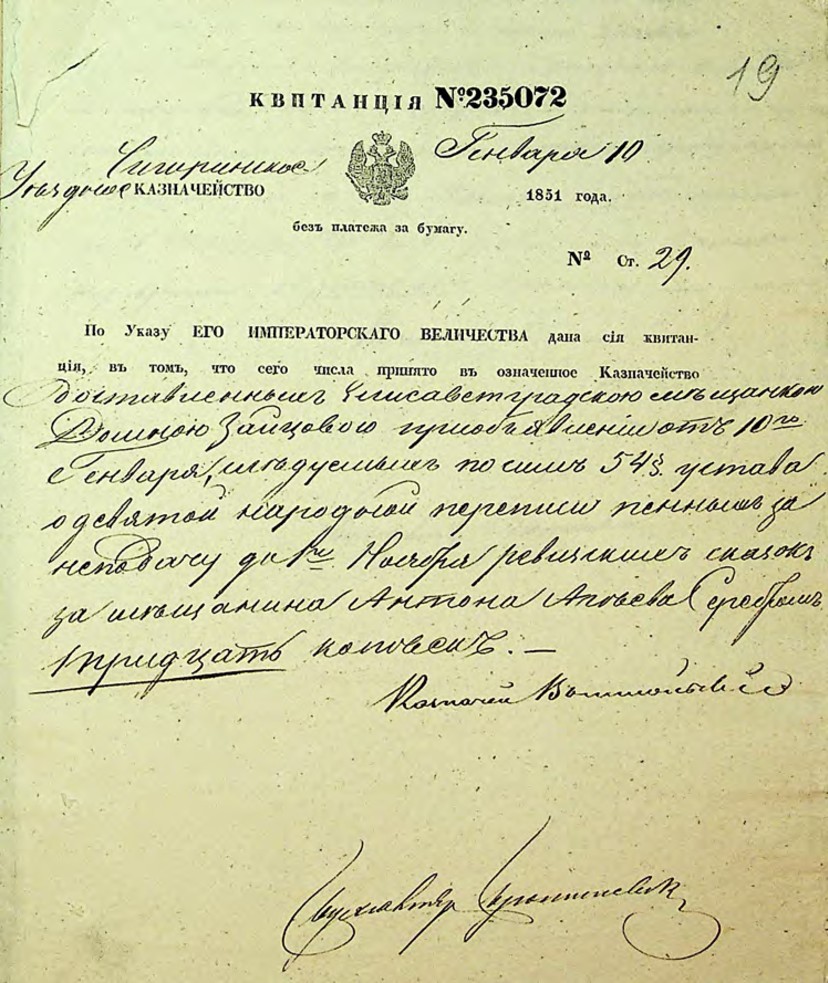 19
КВИТАНЦІЯ №235072
Чигиринское Генваря 10
Уѣздное КАЗНАЧЕЙСТВО 1851 года.
безъ платежа за бумагу.
№ Ст. 29.
По Указу ЕГО ИМПЕРАТОРСКАГО ВЕЛИЧЕСТВА дана сія квитан-
ція, въ томъ, что сего числа принято въ означенное Казначейство
доставленныхъ Елисаветградскою мѣщанкою
Домною Зайцовою приобъявленіи отъ 10го
Генваря, слѣдуемыхъ посилѣ 54§. устава
о девятой народной переписи пенныхъ за
неподачу до 1го Ноября ревизскихъ сказокъ
за мѣщанина Антона Серебромъ
тридцать копѣекъ. —
Казначей
Бухгалтер